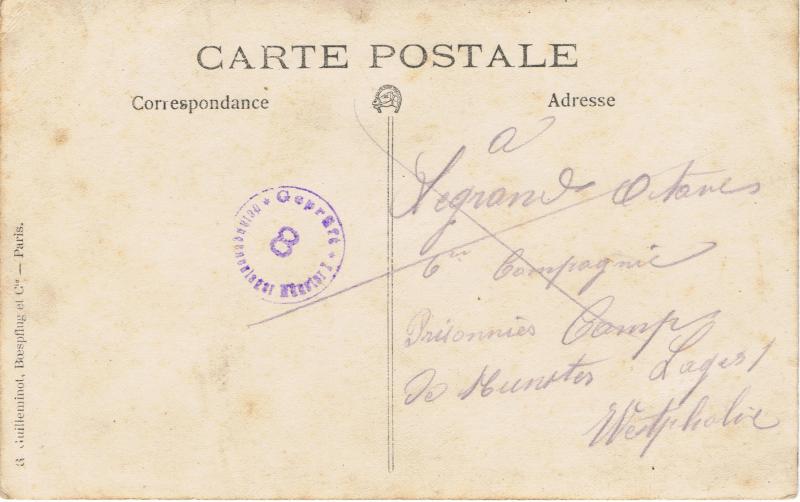 CARTE POSTALE
Correspondance
Adresse
a
Legrand Octave
6e Compagnie
Prisonniés Camp
De Munster Lager 1
Westphalie
* Geprüft *
8
Gefangenenlager Münster I.
Guilleminot, Bœspflug et Cie — Paris.